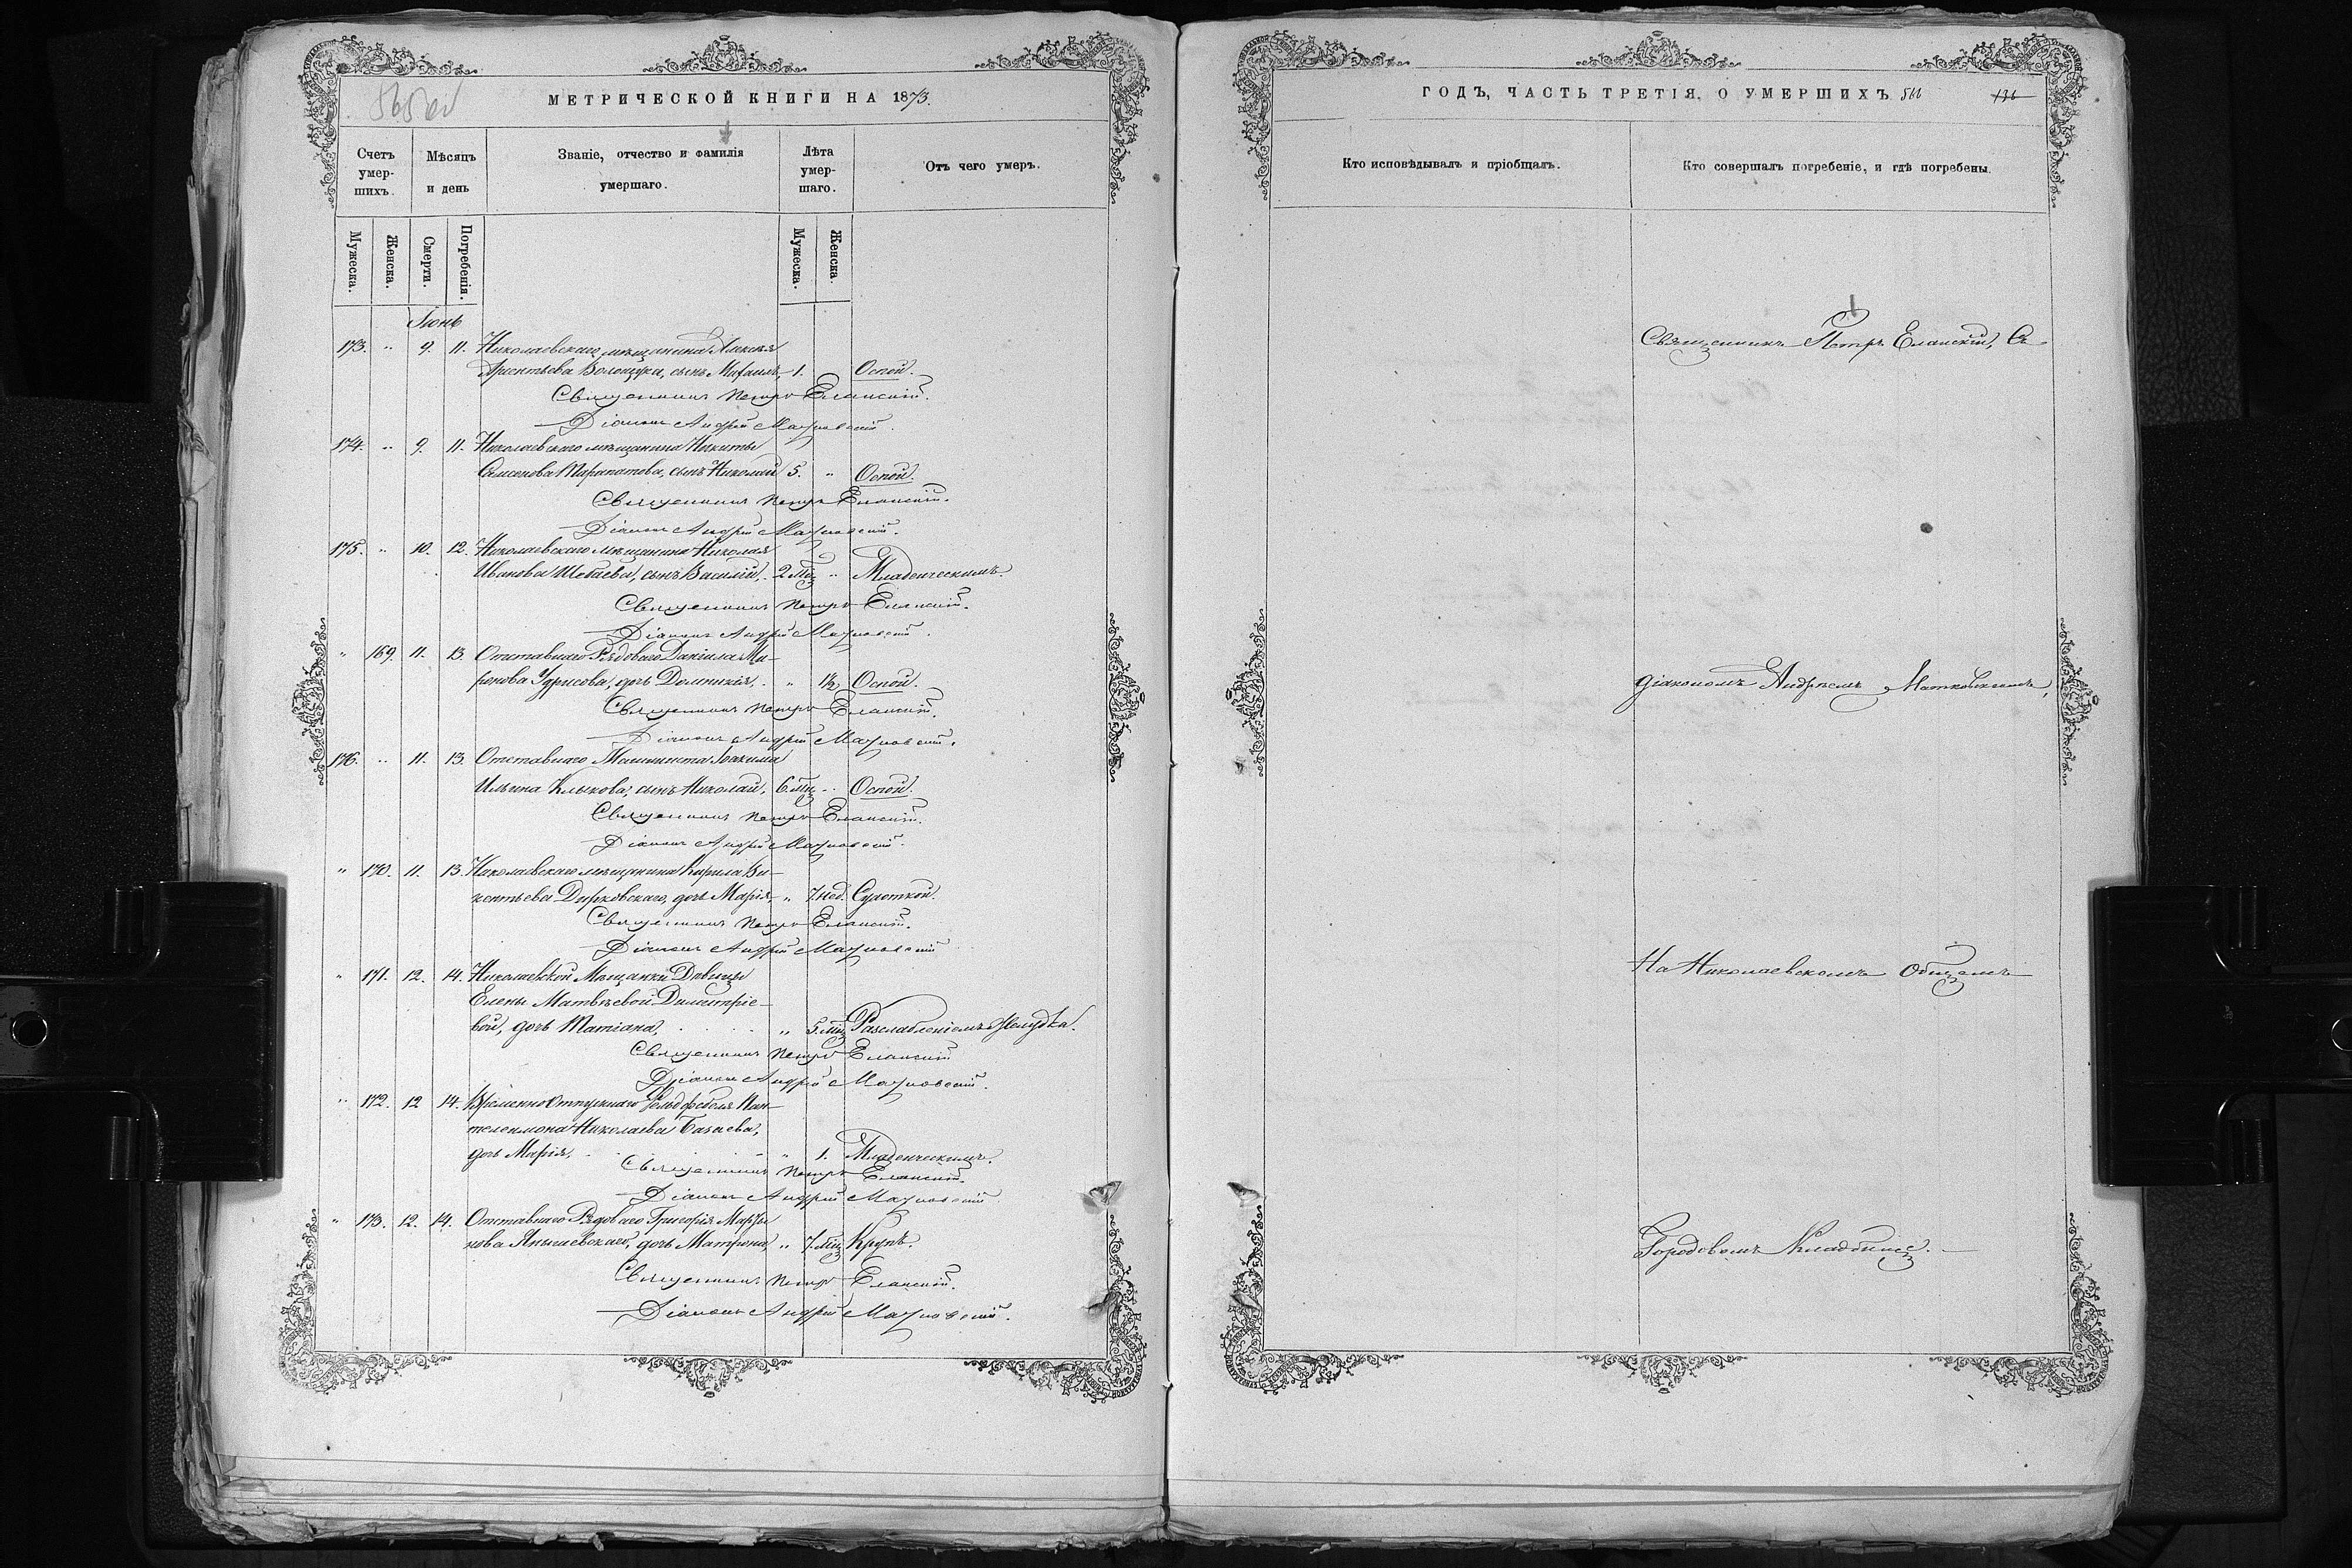 565 об
МЕТРИЧЕСКОЙ КНИГИ НА 1873.
Счетъ умер-шихъ.
Мѣсяцъ и день
Званіе, отчество и фамилія умершаго.
Лѣта умер-шаго.
Отъ чего умеръ.
Мужеска.
Женска.
Смерти.
Погребенія.
Мужеска.
Женска
Іюнь
173. " 9. 11. Николаевскаго мѣщанина Алексѣя
сынъ Михаилъ, 1. Оспой.
Священникъ Петръ Еланскій.
Діаконъ Андрей Матковскій.
174. " 9. 11. Николаевскаго мѣщанина Никиты
Семенова сынъ Николай 5. " Оспой.
Священникъ Петръ Еланскій.
Діаконъ Андрей Матковскій.
175. " 10. 12. Николаевскаго мѣщанина Николая
Иванова Шебаева, сынъ Василій, 2 мѣс " Младенческимъ.
Священникъ Петръ Еланскій.
Діаконъ Андрей Матковскій.
" 169. 11. 13. Отставнаго Рядоваго Даніила Ми-
ронова дочь Домникія, " 1½ Оспой.
Священникъ Петръ Еланскій.
Діаконъ Андрей Матковскій.
176. " 11. 13. Отставнаго Машиниста Іоакима
Ильина Клыкова, сынъ Николай, 6 мѣс " Оспой.
Священникъ Петръ Еланскій.
Діаконъ Андрей Матковскій.
" 170. 11. 13. Николаевскаго мѣщанина Кирила Ви-
кентьева дочь Марія, " 7. нед. Сухоткой.
Священникъ Петръ Еланскій.
Діаконъ Андрей Матковскій
" 171. 12. 14. Николаевской Мѣщанки Дѣвицы
Елены Матвѣевой Димитріе-
вой, дочь Татіана, " 5. мѣс Разслабленіемъ Желудка.
Священникъ Петръ Еланскій
Діаконъ Андрей Матковскій.
" 172. 12 14. Временно Отпускнаго Фельдфебеля Пан-
телеимона Николаева Базаева,
дочь Марія, " 1. Младенческимъ.
Священникъ Петръ Еланскій.
Діаконъ Андрей Матковскій
" 173. 12. 14. Отставнаго Рядоваго Григорія Марты-
нова дочь Матрона, " 7. мѣс Крупъ.
Священникъ Петръ Еланскій.
Діаконъ Андрей Матковскій.
ГОДЪ, ЧАСТЬ ТРЕТІЯ, О УМЕРШИХЪ. 566 136
Кто исповѣдывалъ и пріобщалъ.
Кто совершалъ погребеніе, и гдѣ погребены.
Священникъ Петръ Еланскій, Съ
Діакономъ Андреемъ Матковскимъ,
На Николаевскомъ Общемъ
Городовомъ Кладбищѣ.